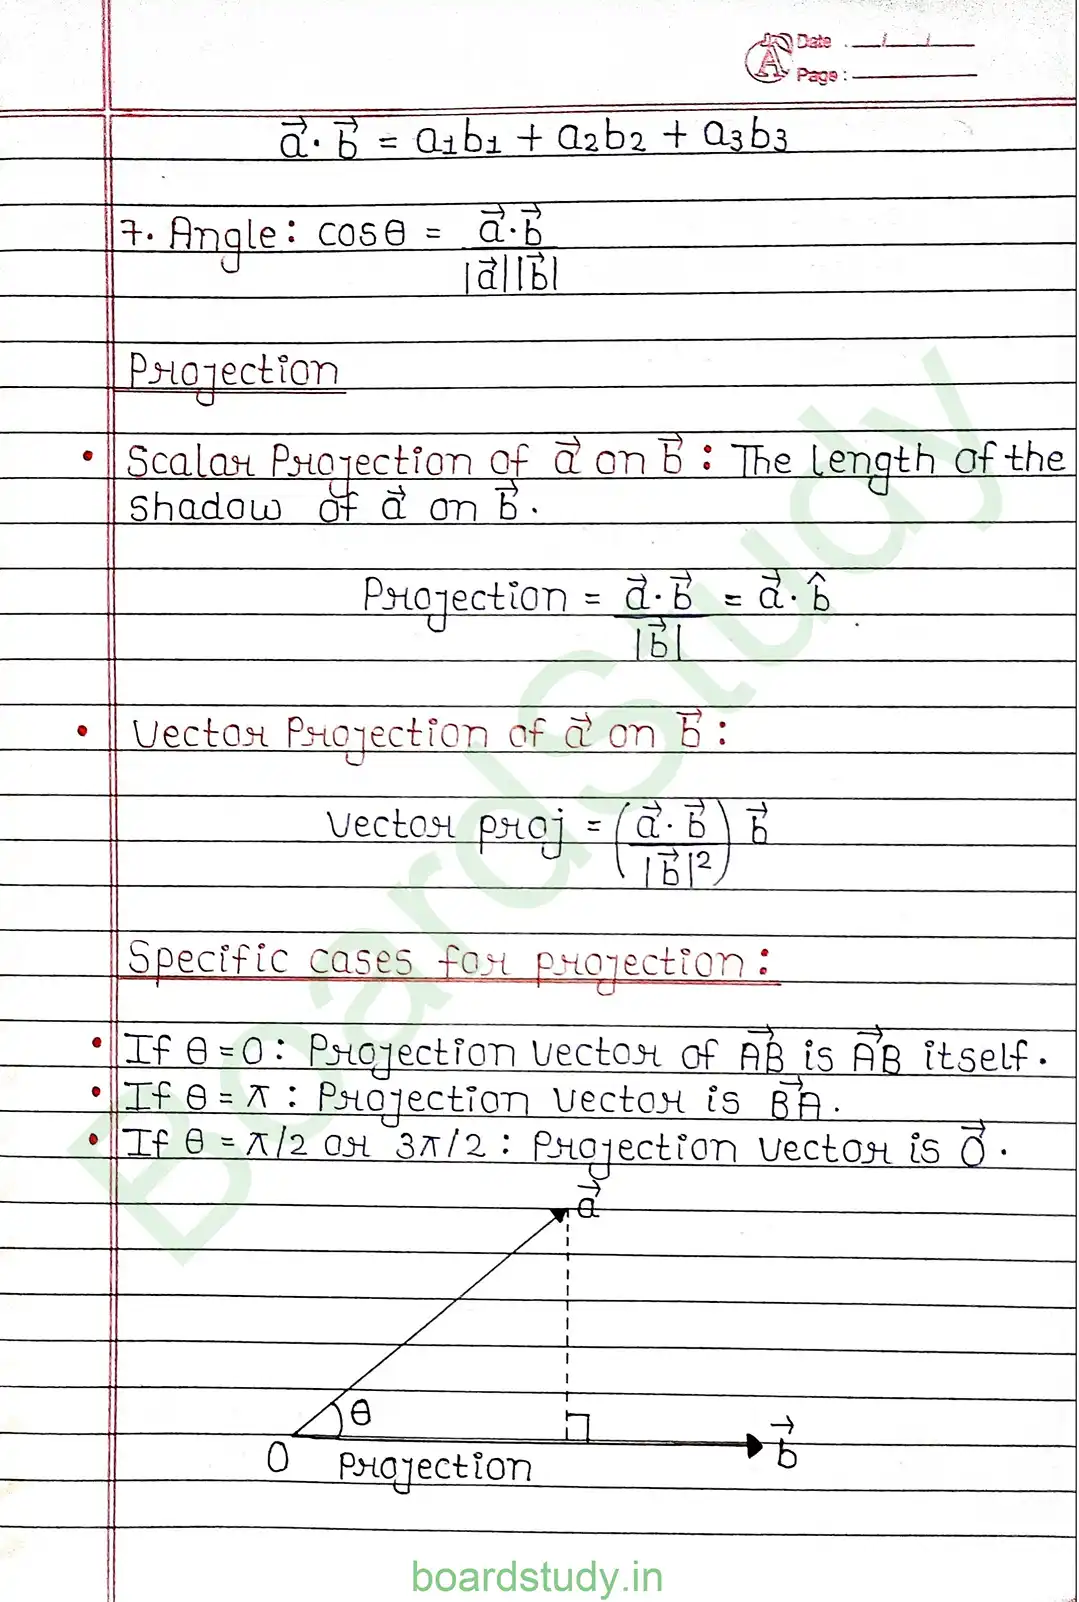 Date : __/__/__
Page : ______
a⃗ · b⃗ = a₁b₁ + a₂b₂ + a₃b₃
7. Angle: cosθ = a⃗·b⃗ / |a⃗||b⃗|
Projection
• Scalar Projection of a⃗ on b⃗ : The length of the
shadow of a⃗ on b⃗ .
Projection = a⃗·b⃗ / |b⃗| = a⃗·b̂
• Vector Projection of a⃗ on b⃗ :
Vector proj = (a⃗·b⃗ / |b⃗|²) b⃗
Specific cases for projection :
• If θ = 0 : Projection vector of AB⃗ is AB⃗ itself.
• If θ = π : Projection vector is BA⃗ .
• If θ = π/2 or 3π/2 : Projection vector is 0⃗ .
a⃗
θ
b⃗
O
Projection
BoardStudy
boardstudy.in